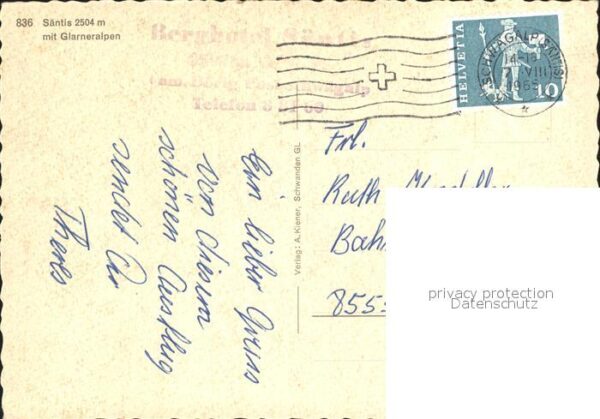 836 Säntis 2504 m
mit Glarneralpen
Berghotel Säntis
Telefon
HELVETIA
10
SCHWÄGALP
VIII
Verlag: A. Kiener, Schwanden GL
Ein lieber Gruss
von diesem
schönen Ausflug
sendet Dir
Theres
Frl.
Ruth
855
privacy protection
Datenschutz